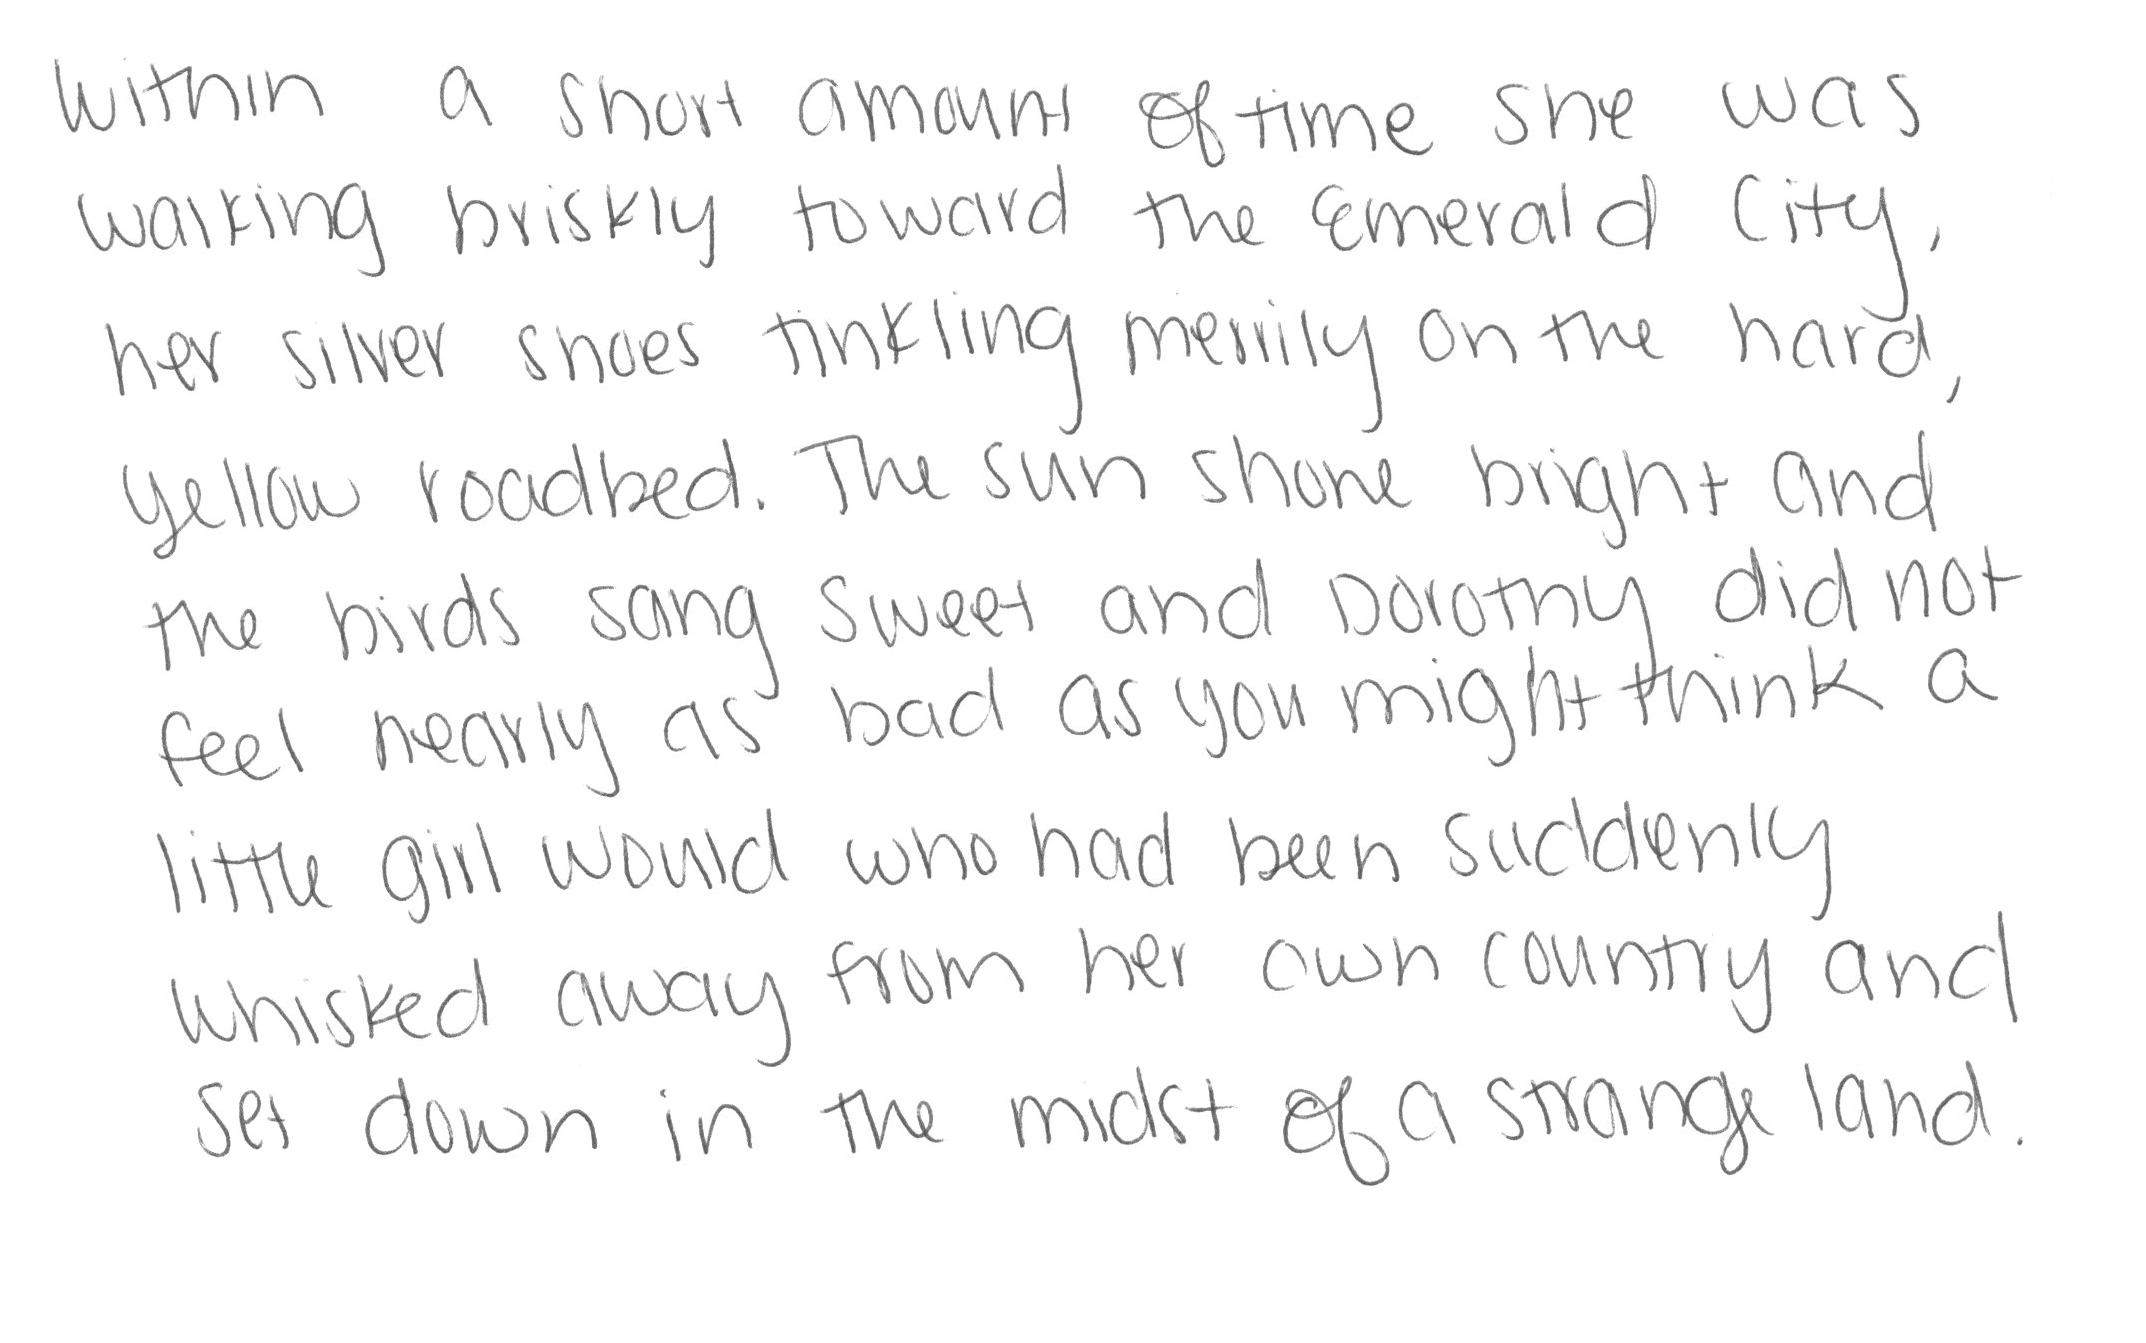 Within a short amount of time she was
walking briskly toward the Emerald City,
her silver shoes tinkling merrily on the hard,
yellow roadbed. The sun shone bright and
the birds sang sweet and Dorothy did not
feel nearly as bad as you might think a
little girl would who had been suddenly
whisked away from her own country and
set down in the midst of a strange land.